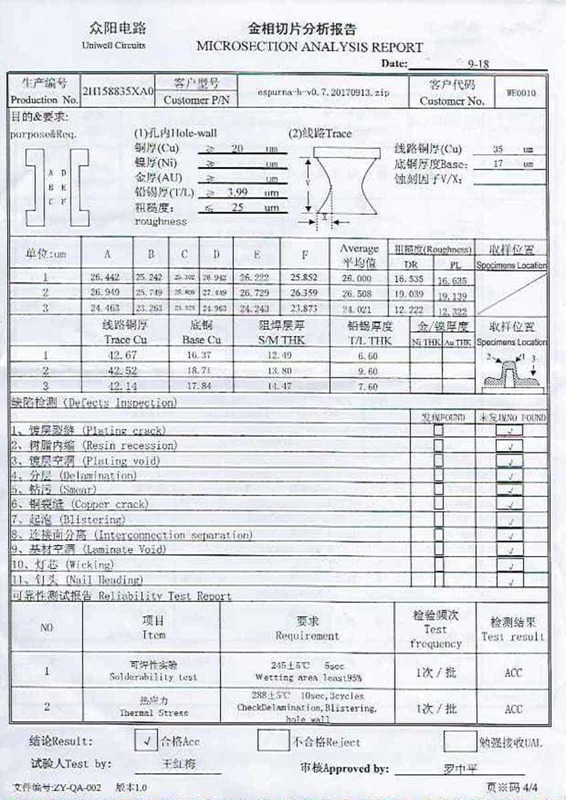 众阳电路 金相切片分析报告
Uniwell Circuits MICROSECTION ANALYSIS REPORT
Date: 9-18
生产编号 2H158835XA0 客户型号 espurna-h-v0.7.20170913.zip 客户代码 WE0010
Production No. Customer P/N Customer No.
目的&要求:
purpose&Req. (1)孔内Hole-wall (2)线路Trace
铜厚(Cu) ≥ 20 um 线路铜厚(Cu) 35 um
镍厚(Ni) ≥ um 底铜厚度Base: 17 um
金厚(AU) ≥ um 蚀刻因子V/X:
铅锡厚(T/L) ≥ 3.99 um
粗糙度: ≤ 25 um
roughness
A D
B E
C F
V
X
单位:um A B C D E F Average 平均值 粗糙度(Roughness) 取样位置
DR PL Specimens Location
1 26.442 25.242 26.942 26.222 25.852 26.000 16.535 16.635
2 26.949 25.749 27.449 26.729 26.359 26.508 19.039 19.139
3 24.463 23.263 24.963 24.243 23.873 24.021 12.222 12.322
线路铜厚 底铜 阻焊层厚 铅锡厚度 金/镍厚度 取样位置
Trace Cu Base Cu S/M THK T/L THK Ni THK Au THK Specimens Location
1 42.67 16.37 12.49 6.60
2 42.52 18.71 13.80 9.60
3 42.14 17.84 14.47 7.60
2 1 3
缺陷检测 (Defects Inspection)
发现FOUND 未发现NO FOUND
1、镀层裂缝 (Plating crack) √
2、树脂内缩 (Resin recession) √
3、镀层空洞 (Plating void) √
4、分层 (Delamination) √
5、钻污 (Smear) √
6、铜裂缝 (Copper crack) √
7、起泡 (Blistering) √
8、连接面分离 (Interconnection separation) √
9、基材空洞 (Laminate Void) √
10、灯芯 (Wicking) √
11、钉头 (Nail Heading) √
可靠性测试报告 Reliability Test Report
NO 项目 Item 要求 Requirement 检验频次 Test frequency 检测结果 Test result
1 可焊性实验 Solderability test 245±5℃ 5sec Wetting area least95% 1次/批 ACC
2 热应力 Thermal Stress 288±5℃ 10sec,3cycles CheckDelamination,Blistering, hole wall 1次/批 ACC
结论Result: √ 合格Acc 不合格Reject 勉强接收UAL
试验人Test by: 王红梅 审核Approved by: 罗中平
文件编号:ZY-QA-002 版本1.0 页※码 4/4